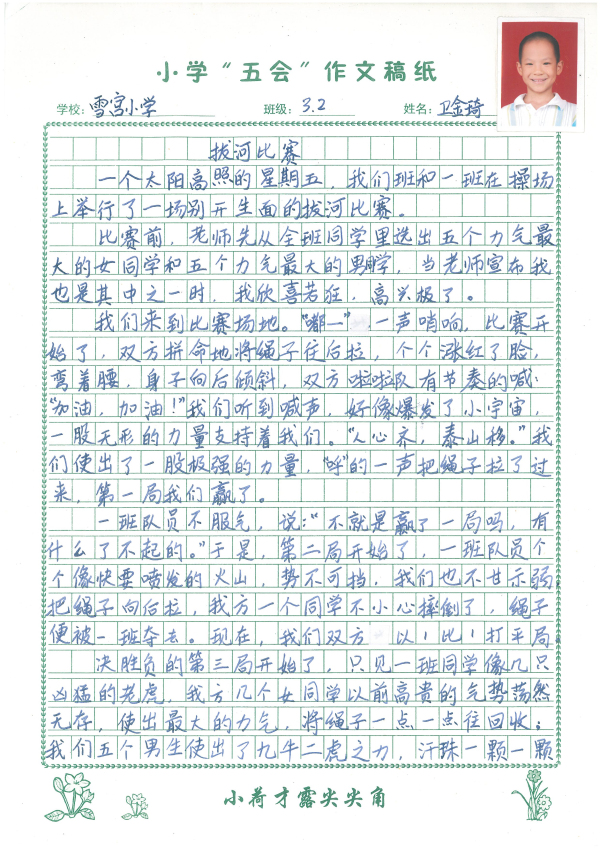 小学“五会”作文稿纸
学校：雪宫小学 班级：3.2 姓名：卫金琦
拔河比赛
一个太阳高照的星期五，我们班和一班在操场
上举行了一场别开生面的拔河比赛。
比赛前，老师先从全班同学里选出五个力气最
大的女同学和五个力气最大的男同学，当老师宣布我
也是其中之一时，我欣喜若狂，高兴极了。
我们来到比赛场地。“嘟一”一声哨响，比赛开
始了，双方拼命地将绳子往后拉，个个涨红了脸，
弯着腰，身子向后倾斜，双方啦啦队有节奏的喊：
“加油，加油！”我们听到喊声，好像爆发了小宇宙，
一股无形的力量支持着我们。“人心齐，泰山移。”我
们使出了一股极强的力量，“呼”的一声把绳子拉了过
来，第一局我们赢了。
一班队员不服气，说：“不就是赢了一局吗，有
什么了不起的。”于是，第二局开始了，一班队员个
个像快要喷发的火山，势不可挡，我们也不甘示弱，
把绳子向后拉，我方一个同学不小心摔倒了，绳子
便被一班夺去。现在，我们双方以1比1打平局
决胜负的第三局开始了，只见一班同学像几只
凶猛的老虎，我方几个女同学以前高贵的气势荡然
无存，使出最大的力气，将绳子一点一点往回收；
我们五个男生使出了九牛二虎之力，汗珠一颗一颗
小荷才露尖尖角